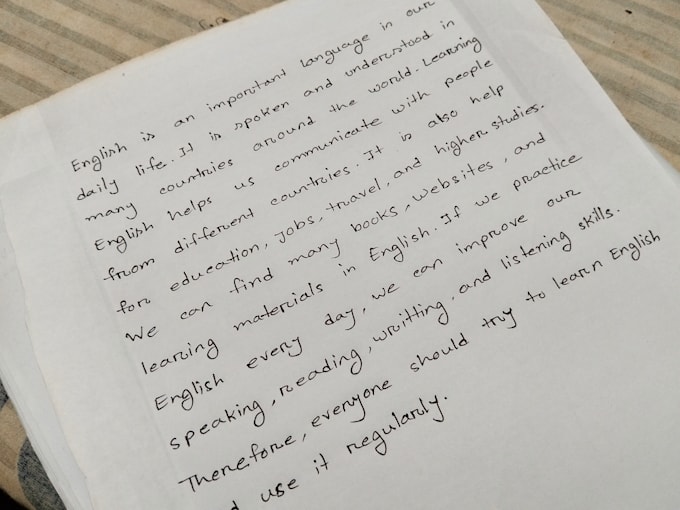 English is an important language in our
daily life. It is spoken and understood in
many countries around the world. Learning
English helps us communicate with people
from different countries. It is also help
for education, jobs, travel, and higher studies.
We can find many books, websites, and
learing materials in English. If we practice
English every day, we can improve our
speaking, reading, writting, and listening skills.
Therefore, everyone should try to learn English
use it regularly.